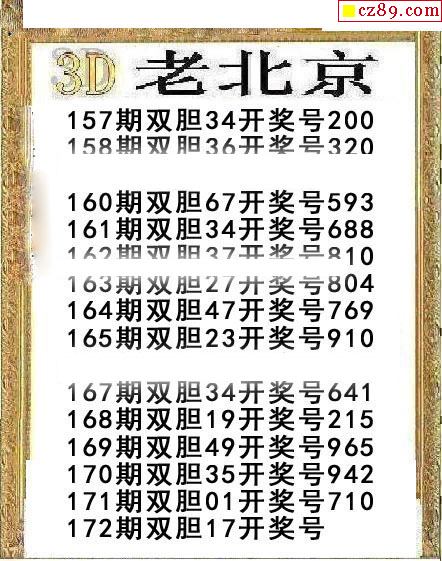 cz89.com
3D 老北京
157期双胆34开奖号200
158期双胆36开奖号320
160期双胆67开奖号593
161期双胆34开奖号688
162期双胆37开奖号810
163期双胆27开奖号804
164期双胆47开奖号769
165期双胆23开奖号910
167期双胆34开奖号641
168期双胆19开奖号215
169期双胆49开奖号965
170期双胆35开奖号942
171期双胆01开奖号710
172期双胆17开奖号